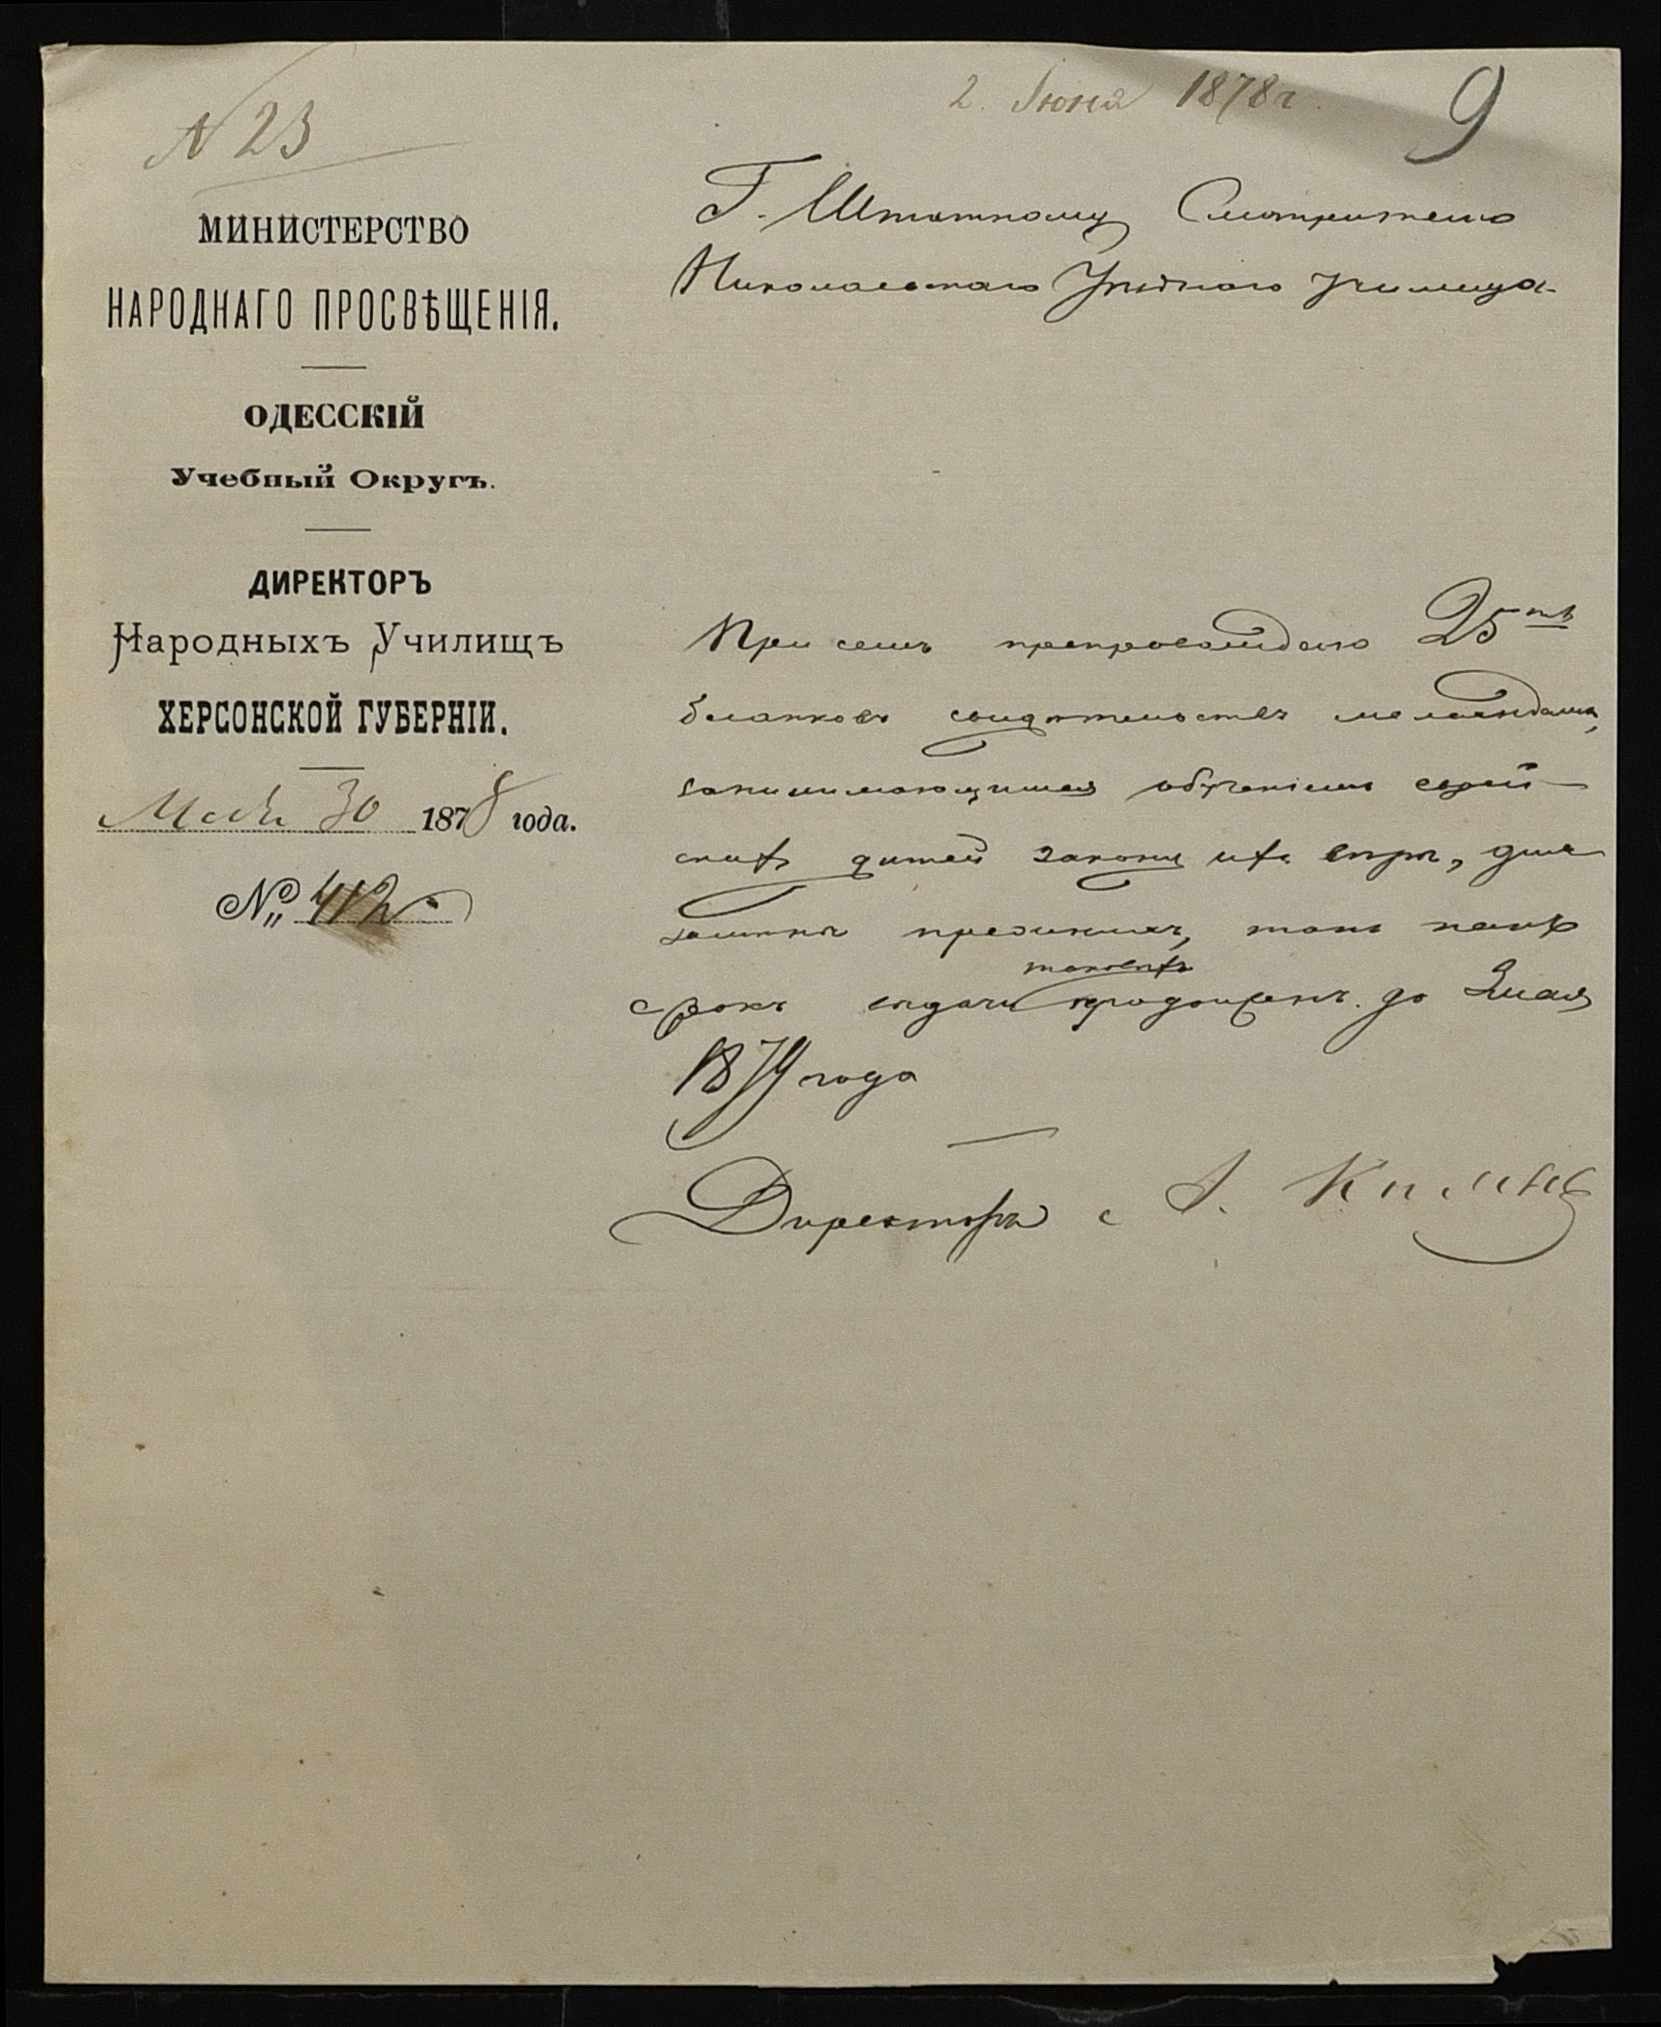 № 23
2. Июня 1878 г.
9
МИНИСТЕРСТВО
НАРОДНАГО ПРОСВѢЩЕНІЯ.
ОДЕССКІЙ
Учебный Округъ.
ДИРЕКТОРЪ
Народныхъ Училищъ
ХЕРСОНСКОЙ ГУБЕРНІИ.
Мая 30 1878 года.
№ 412
Г. Штатному Смотрителю
Николаевскаго Уѣзднаго Училища
При семъ препровождаю 25ть
бланковъ свидѣтельствъ меламдамъ,
занимающимся обученіемъ еврей
скихъ дѣтей закону ихъ вѣры, для
замѣны прежнихъ, такъ какъ
срокъ выдачи таковыхъ продолженъ до 3 мая
1879 года
Директоръ